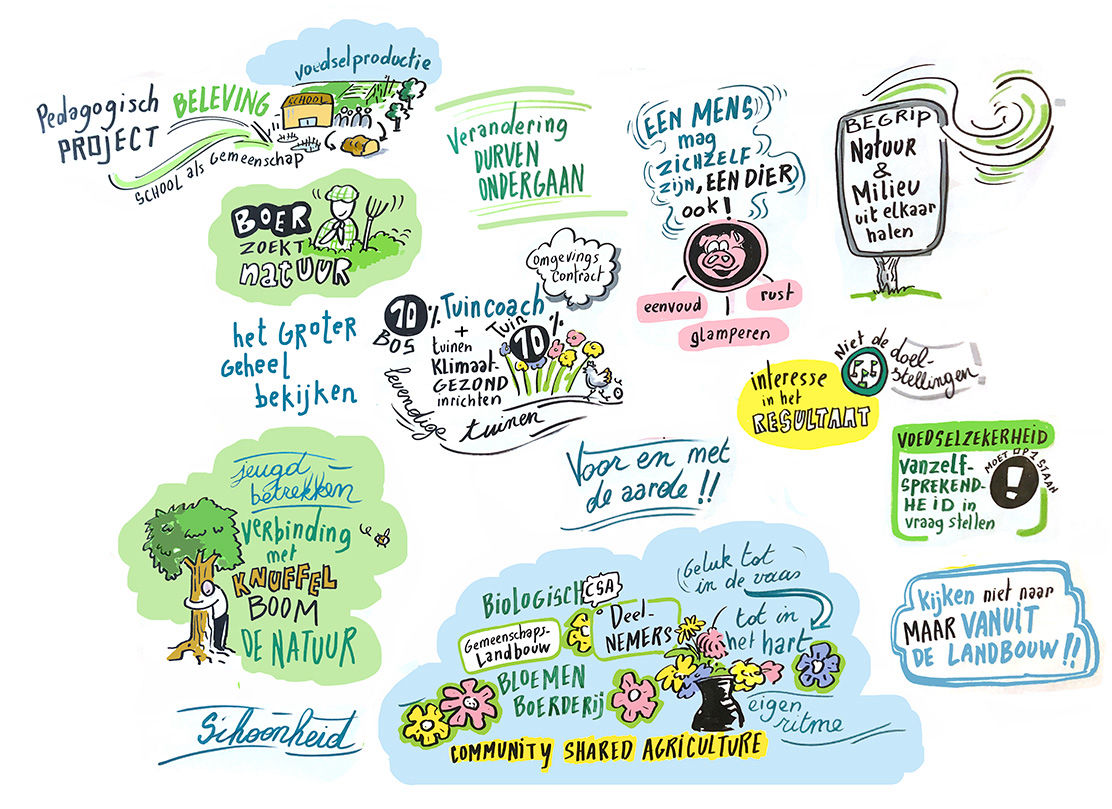 voedselproductie
Pedagogisch
PROJECT
BELEVING
SCHOOL
SCHOOL als Gemeenschap
Verandering
DURVEN
ONDERGAAN
EEN MENS
mag
ZICHZELF
ZIJN, EEN DIER
ook!
eenvoud
rust
glamperen
BEGRIP
Natuur
&
Milieu
uit elkaar
halen
BOER
ZOEKT
natuur
omgevings
contract
10%
BOS
Tuincoach
+
tuinen
KLIMAAT-
GEZOND
inrichten
Tuin
10%
levendige tuinen
het GROTER
GEHEEL
bekijken
interesse
in het
RESULTAAT
Niet de doel-
stellingen
VOEDSELZEKERHEID
VANZELF-
SPREKEND-
HEID in
vraag stellen
MOET OP 1 STAAN
!
Voor en met
de aarde!!
jeugd
betrekken
VERBINDING
met
KNUFFEL
BOOM
DE NATUUR
Schoonheid
BIOLOGISCH
CSA
Gemeenschaps-
Landbouw
Deel-
NEMERS
BLOEMEN
BOERDERIJ
Geluk tot
in de vaas
tot in
het hart
eigen
ritme
COMMUNITY SHARED AGRICULTURE
Kijken niet naar
MAAR VANUIT
DE LANDBOUW!!